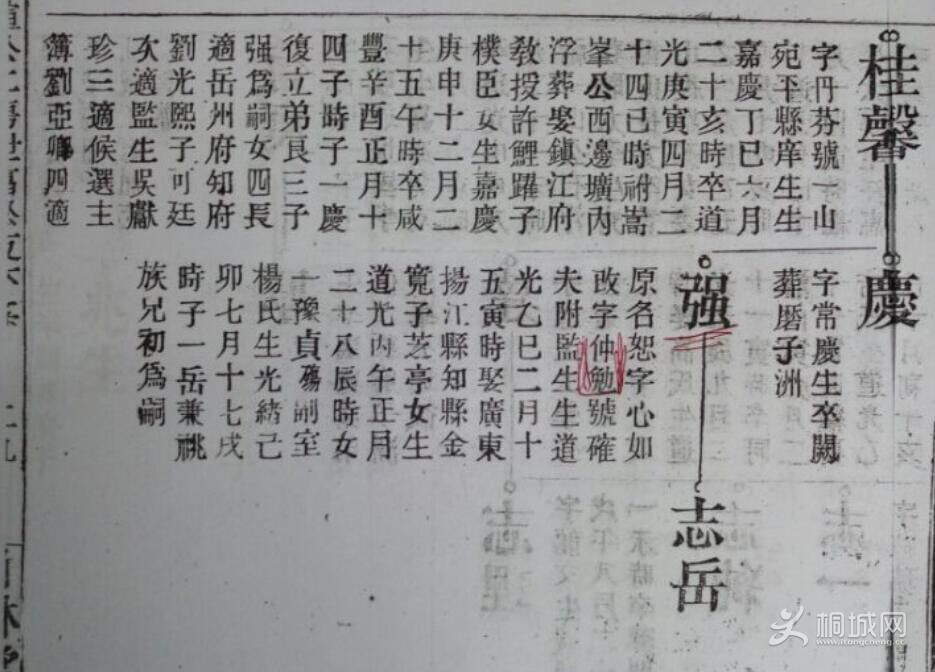 桂馨
字丹芬號一山
宛平縣庠生生
嘉慶丁巳六月
二十亥時卒道
光庚寅四月二
十四巳時祔嵩
峯公西邊壙內
浮葬娶鎮江府
教授許鯉躍子
樸臣女生嘉慶
庚申十二月二
十五午時卒咸
豐辛酉正月十
四子時子一慶
復立弟艮三子
强爲嗣女四長
適岳州府知府
劉光熙子可廷
次適監生吳獻
珍三適候選主
簿劉亞卿四適
慶
字常慶生卒闕
葬磨子洲
强
原名恕字心如
改字仲勉號確
夫附監生生道
光乙巳二月十
五寅時娶廣東
揚江縣知縣金
寬子芝亭女生
道光丙午正月
二十八辰時女
一豫貞殤副室
楊氏生光緒己
卯七月十七戌
時子一岳兼祧
族兄初爲嗣
志岳
桐城网
itongcheng.com